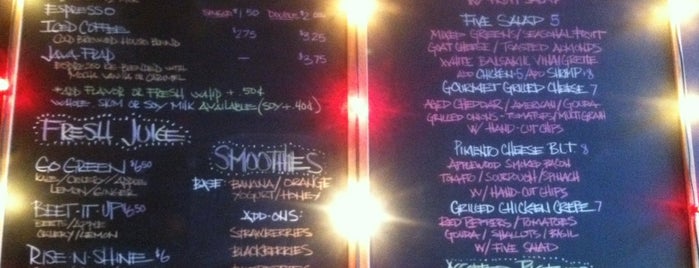 ESPRESSO SINGLE $1.50 DOUBLE $2
ICED COFFEE $2.75 $3.25
COLD BREWED HOUSE BLEND
JAVA FRAP — $3.75
ESPRESSO OR BLENDED WITH
MOCHA VANILLA OR CARAMEL
+ADD FLAVOR OR FRESH WHIP + 50¢
WHOLE SKIM OR SOY MILK AVAILABLE (SOY + 40¢)
FRESH JUICE
GO GREEN $6.50
KALE/CELERY/APPLE
LEMON/GINGER
BEET-IT UP $6.50
BEETS/APPLE
CELERY/LEMON
RISE-N-SHINE $6
SMOOTHIES
BASE: BANANA/ORANGE
YOGURT/HONEY
ADD-ONS:
STRAWBERRIES
BLACKBERRIES
W/ FRUIT SALAD
FIVE SALAD 5
MIXED GREENS/SEASONAL FRUIT
GOAT CHEESE/TOASTED ALMONDS
WHITE BALSAMIC VINAIGRETTE
ADD CHICKEN 5 ADD SHRIMP 8
GOURMET GRILLED CHEESE 7
AGED CHEDDAR/AMERICAN/GOUDA
GRILLED ONIONS - TOMATOES/MULTIGRAIN
W/ HAND-CUT CHIPS
PIMENTO CHEESE BLT 8
APPLEWOOD SMOKED BACON
TOMATO/SOURDOUGH/SPINACH
W/ HAND-CUT CHIPS
GRILLED CHICKEN CREPE 7
RED PEPPERS/TOMATOES
GOUDA/SHALLOTS/BASIL
W/ FIVE SALAD